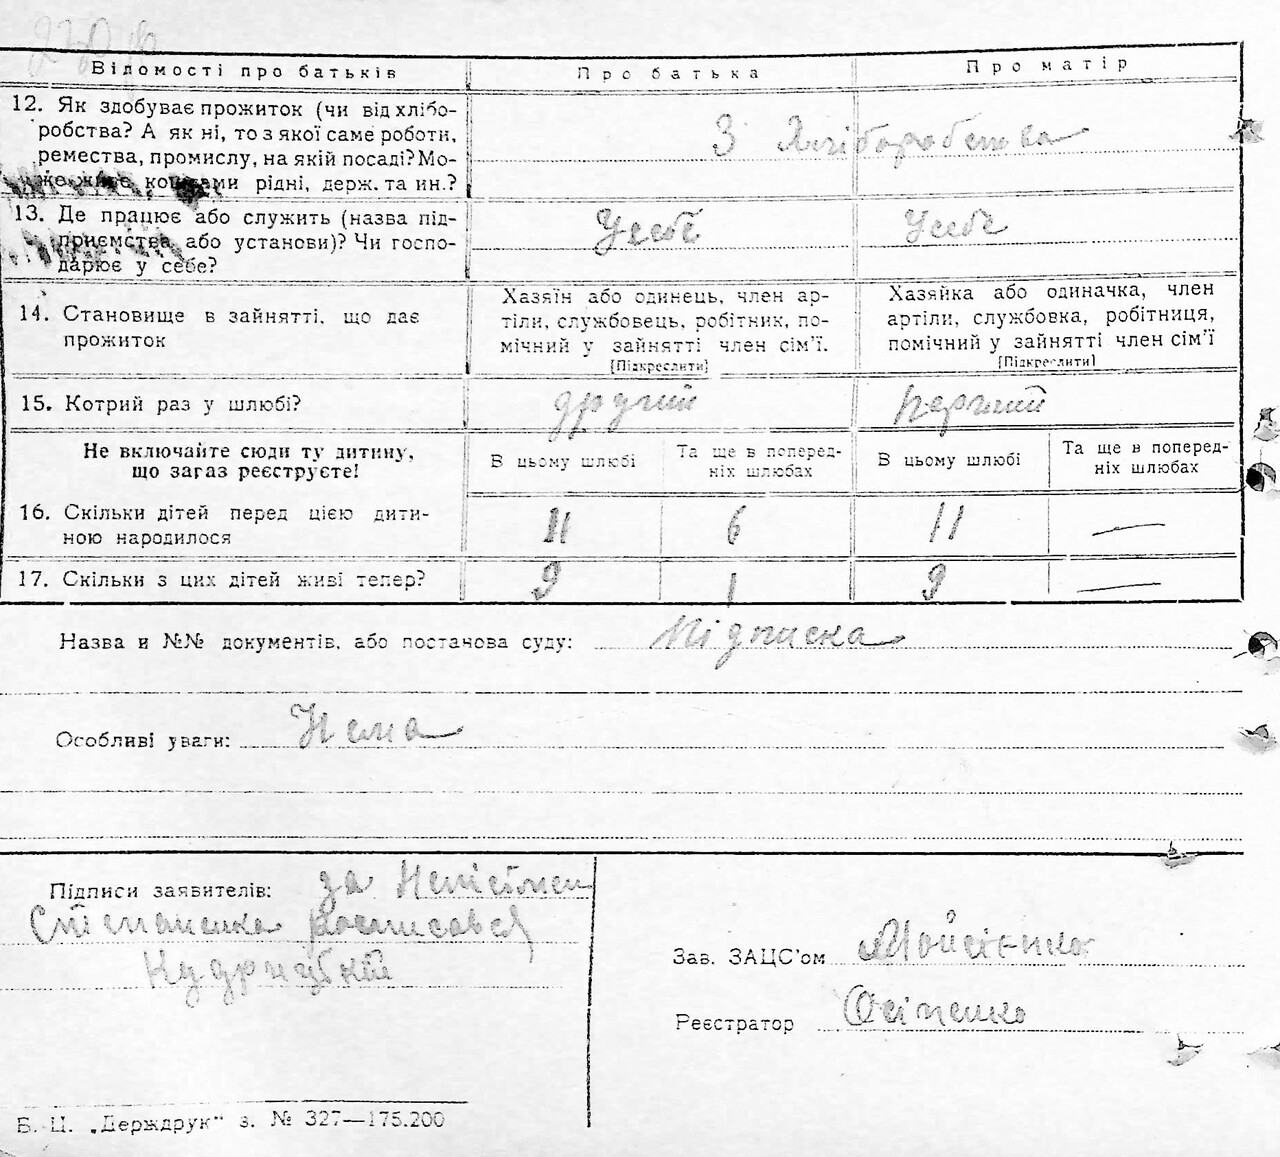 Відомості про батьків Про батька Про матір
12. Як здобуває прожиток (чи від хлібо-
робства? А як ні, то з якої саме роботи,
ремества, промислу, на якій посаді? Мо-
же живе коштами рідні, держ. та ин.?
З Хліборобства
13. Де працює або служить (назва під-
приємства або установи)? Чи госпо-
дарює у себе?
Усебе Усебе
14. Становище в зайнятті, що дає
прожиток
Хазяїн або одинець, член ар-
тілі, службовець, робітник, по-
мічний у зайнятті член сім'ї.
[Підкреслити]
Хазяйка або одиначка, член
артіли, службовка, робітниця,
помічний у зайнятті член сім'ї
[Підкреслити]
15. Котрий раз у шлюбі? другий перший
Не включайте сюди ту дитину,
що загаз реєструєте!
В цьому шлюбі
Та ще в поперед-
ніх шлюбах
В цьому шлюбі
Та ще в поперед-
ніх шлюбах
16. Скільки дітей перед цією дити-
ною народилося
11 6 11 —
17. Скільки з цих дітей живі тепер? 9 1 9 —
Назва и №№ документів, або постанова суду: Підписка
Особливі уваги: Нема
Підписи заявителів: за
Степаненка росписався
Зав. ЗАЦС'ом Мойсієнко
Реєстратор Осіпенко
Б. Ц. „Держдрук" з. № 327—175.200